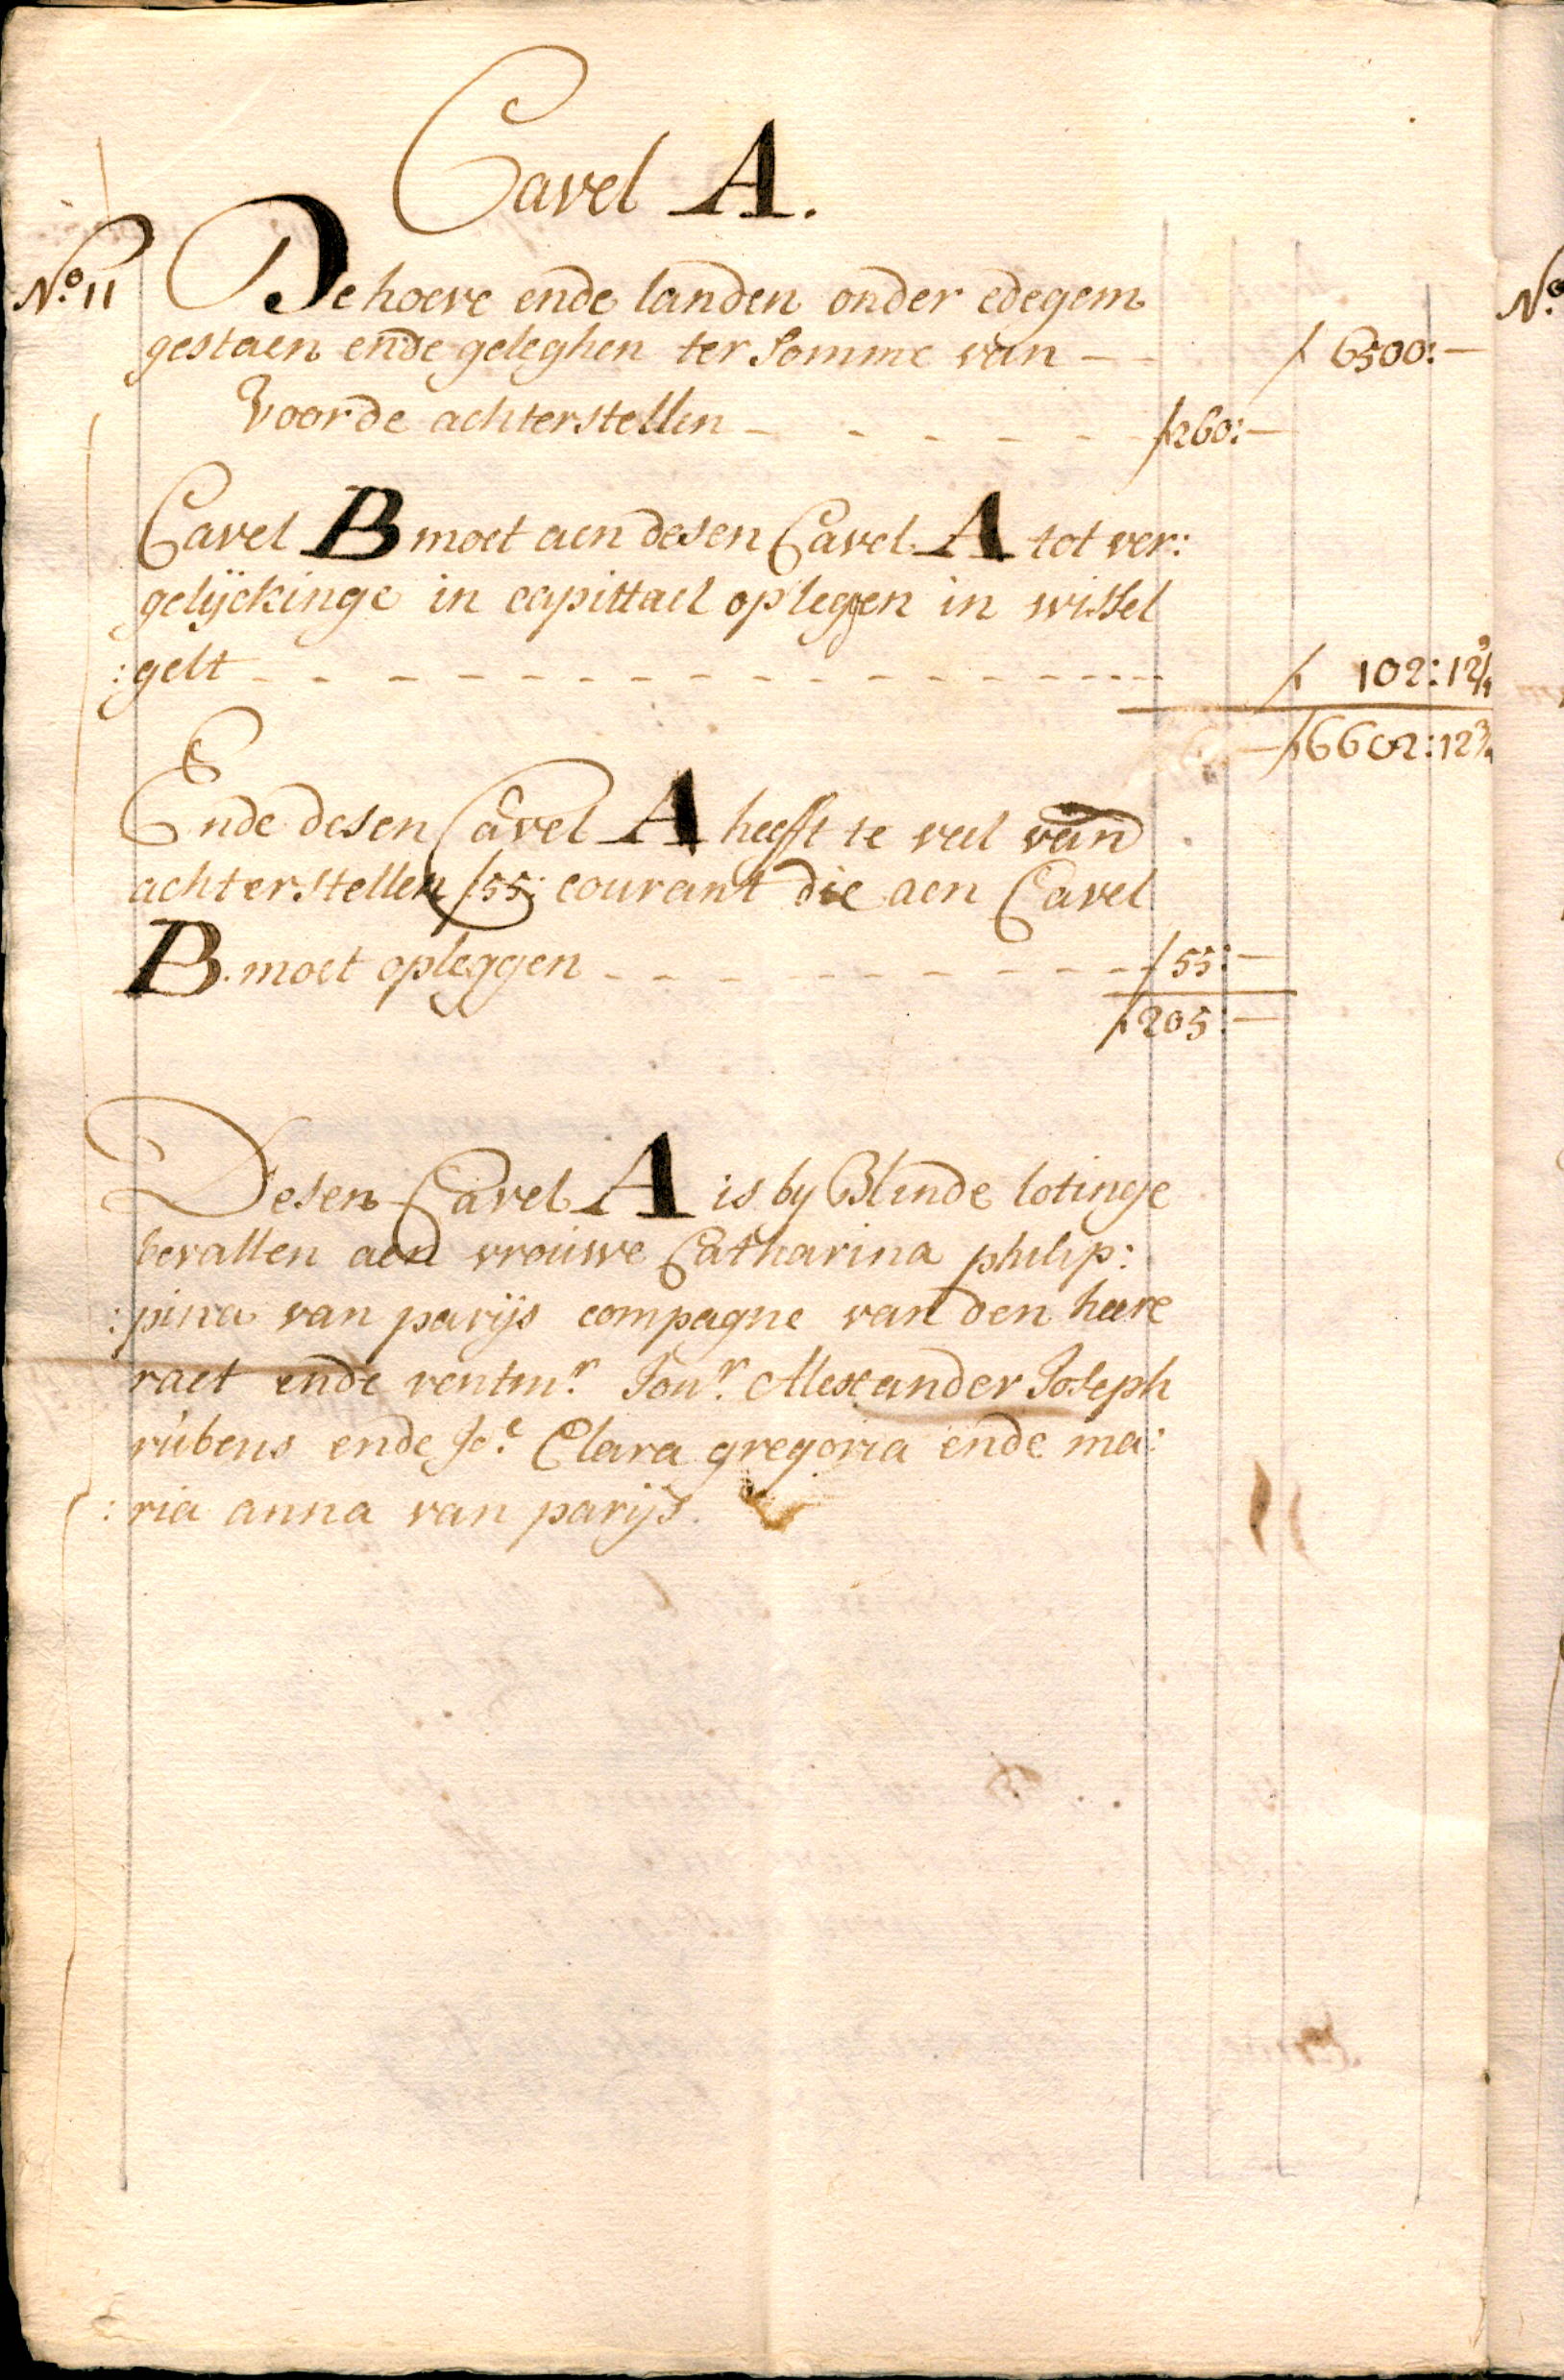 Cavel A.
No. 11 De hoeve ende landen onder edegem
gestaen ende geleghen ter somme van — ƒ 6500:—
Voor de achterstellen - - - - - - ƒ260:—
Cavel B moet aen desen Cavel A tot ver:
gelijckinge in capittael opleggen in wissel
:gelt - - - - - - - - - - - - - - - - ƒ 102:12¾
ƒ6602:12¾
Ende desen Cavel A heefft te veel van
achterstellen ƒ55: courant die aen Cavel
B. moet opleggen - - - - - - - - - - ƒ55:—
ƒ205:—
Desen Cavel A is by Blinde lotinge
bevallen aen vrouwe Catharina philip:
:pina van parijs compagne van den heere
raet ende rentmr. Jonr. Alexander Joseph
rúbens ende Jo.e Clara gregoria ende ma:
:ria anna van parijs.
No.